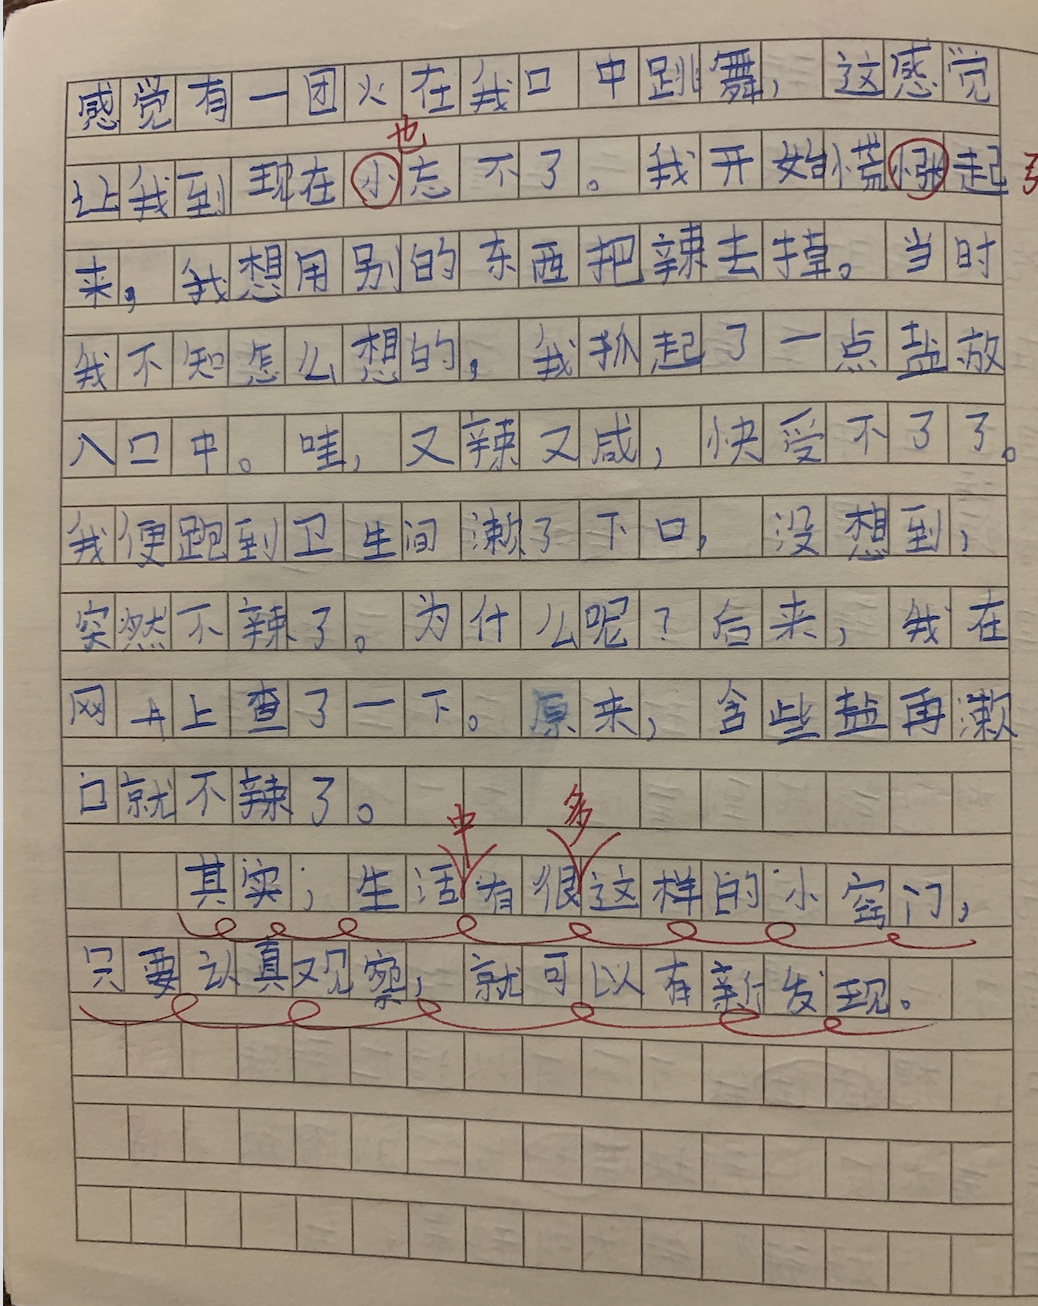 感觉有一团火在我口中跳舞，这感觉
也
让我到现在小忘不了。我开始慌张起
来，我想用别的东西把辣去掉。当时
我不知怎么想的，我抓起了一点盐放
入口中。哇，又辣又咸，快受不了了。
我便跑到卫生间漱了下口，没想到，
突然不辣了。为什么呢？后来，我在
网上查了一下。原来，含些盐再漱
口就不辣了。
中 多
其实，生活有很这样的小窍门，
只要认真观察，就可以有新发现。